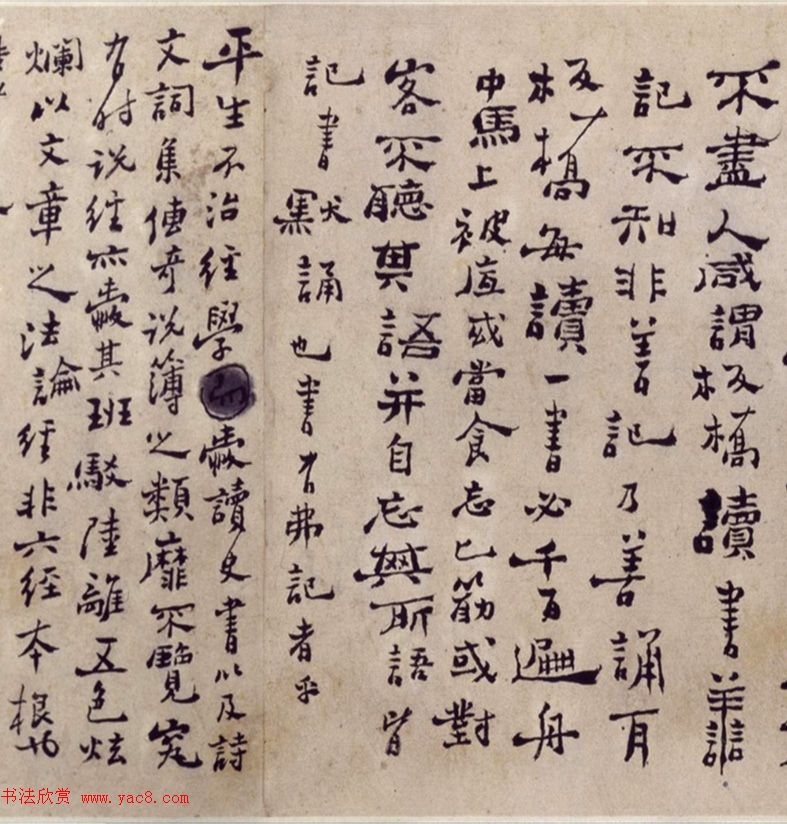 不盡人咸謂板橋讀書善記
記不知非善記乃善誦耳
板橋每讀一書必千百遍舟
中馬上被底或當食忘匕筯或對
客不聽其語并自忘其所語皆
記書默誦也書有弗記者乎
平生不治經學愛讀史書以及詩
文詞集傳奇說簿之類靡不覽究
有时说經亦愛其斑駁陸離五色炫
爛以文章之法論經非六經本根也
书法欣赏 www.yac8.com